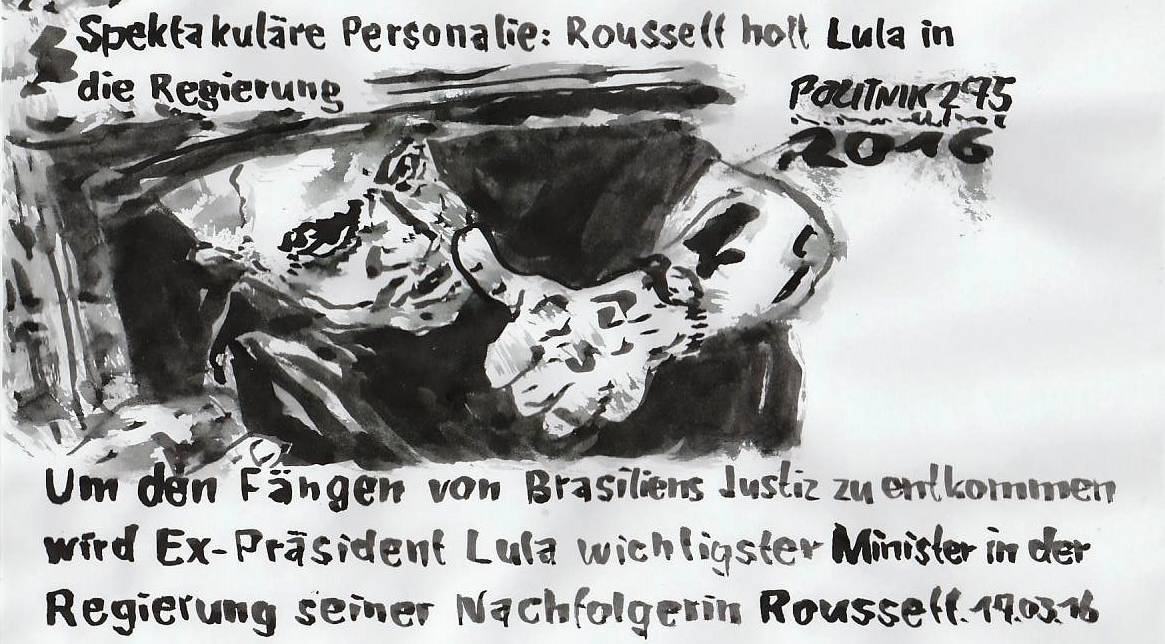 Spektakuläre Personalie: Rousseff holt Lula in
die Regierung
POLITNIK 275
2016
Um den Fängen von Brasiliens Justiz zu entkommen
wird Ex-Präsident Lula wichtigster Minister in der
Regierung seiner Nachfolgerin Rousseff. 17.03.16